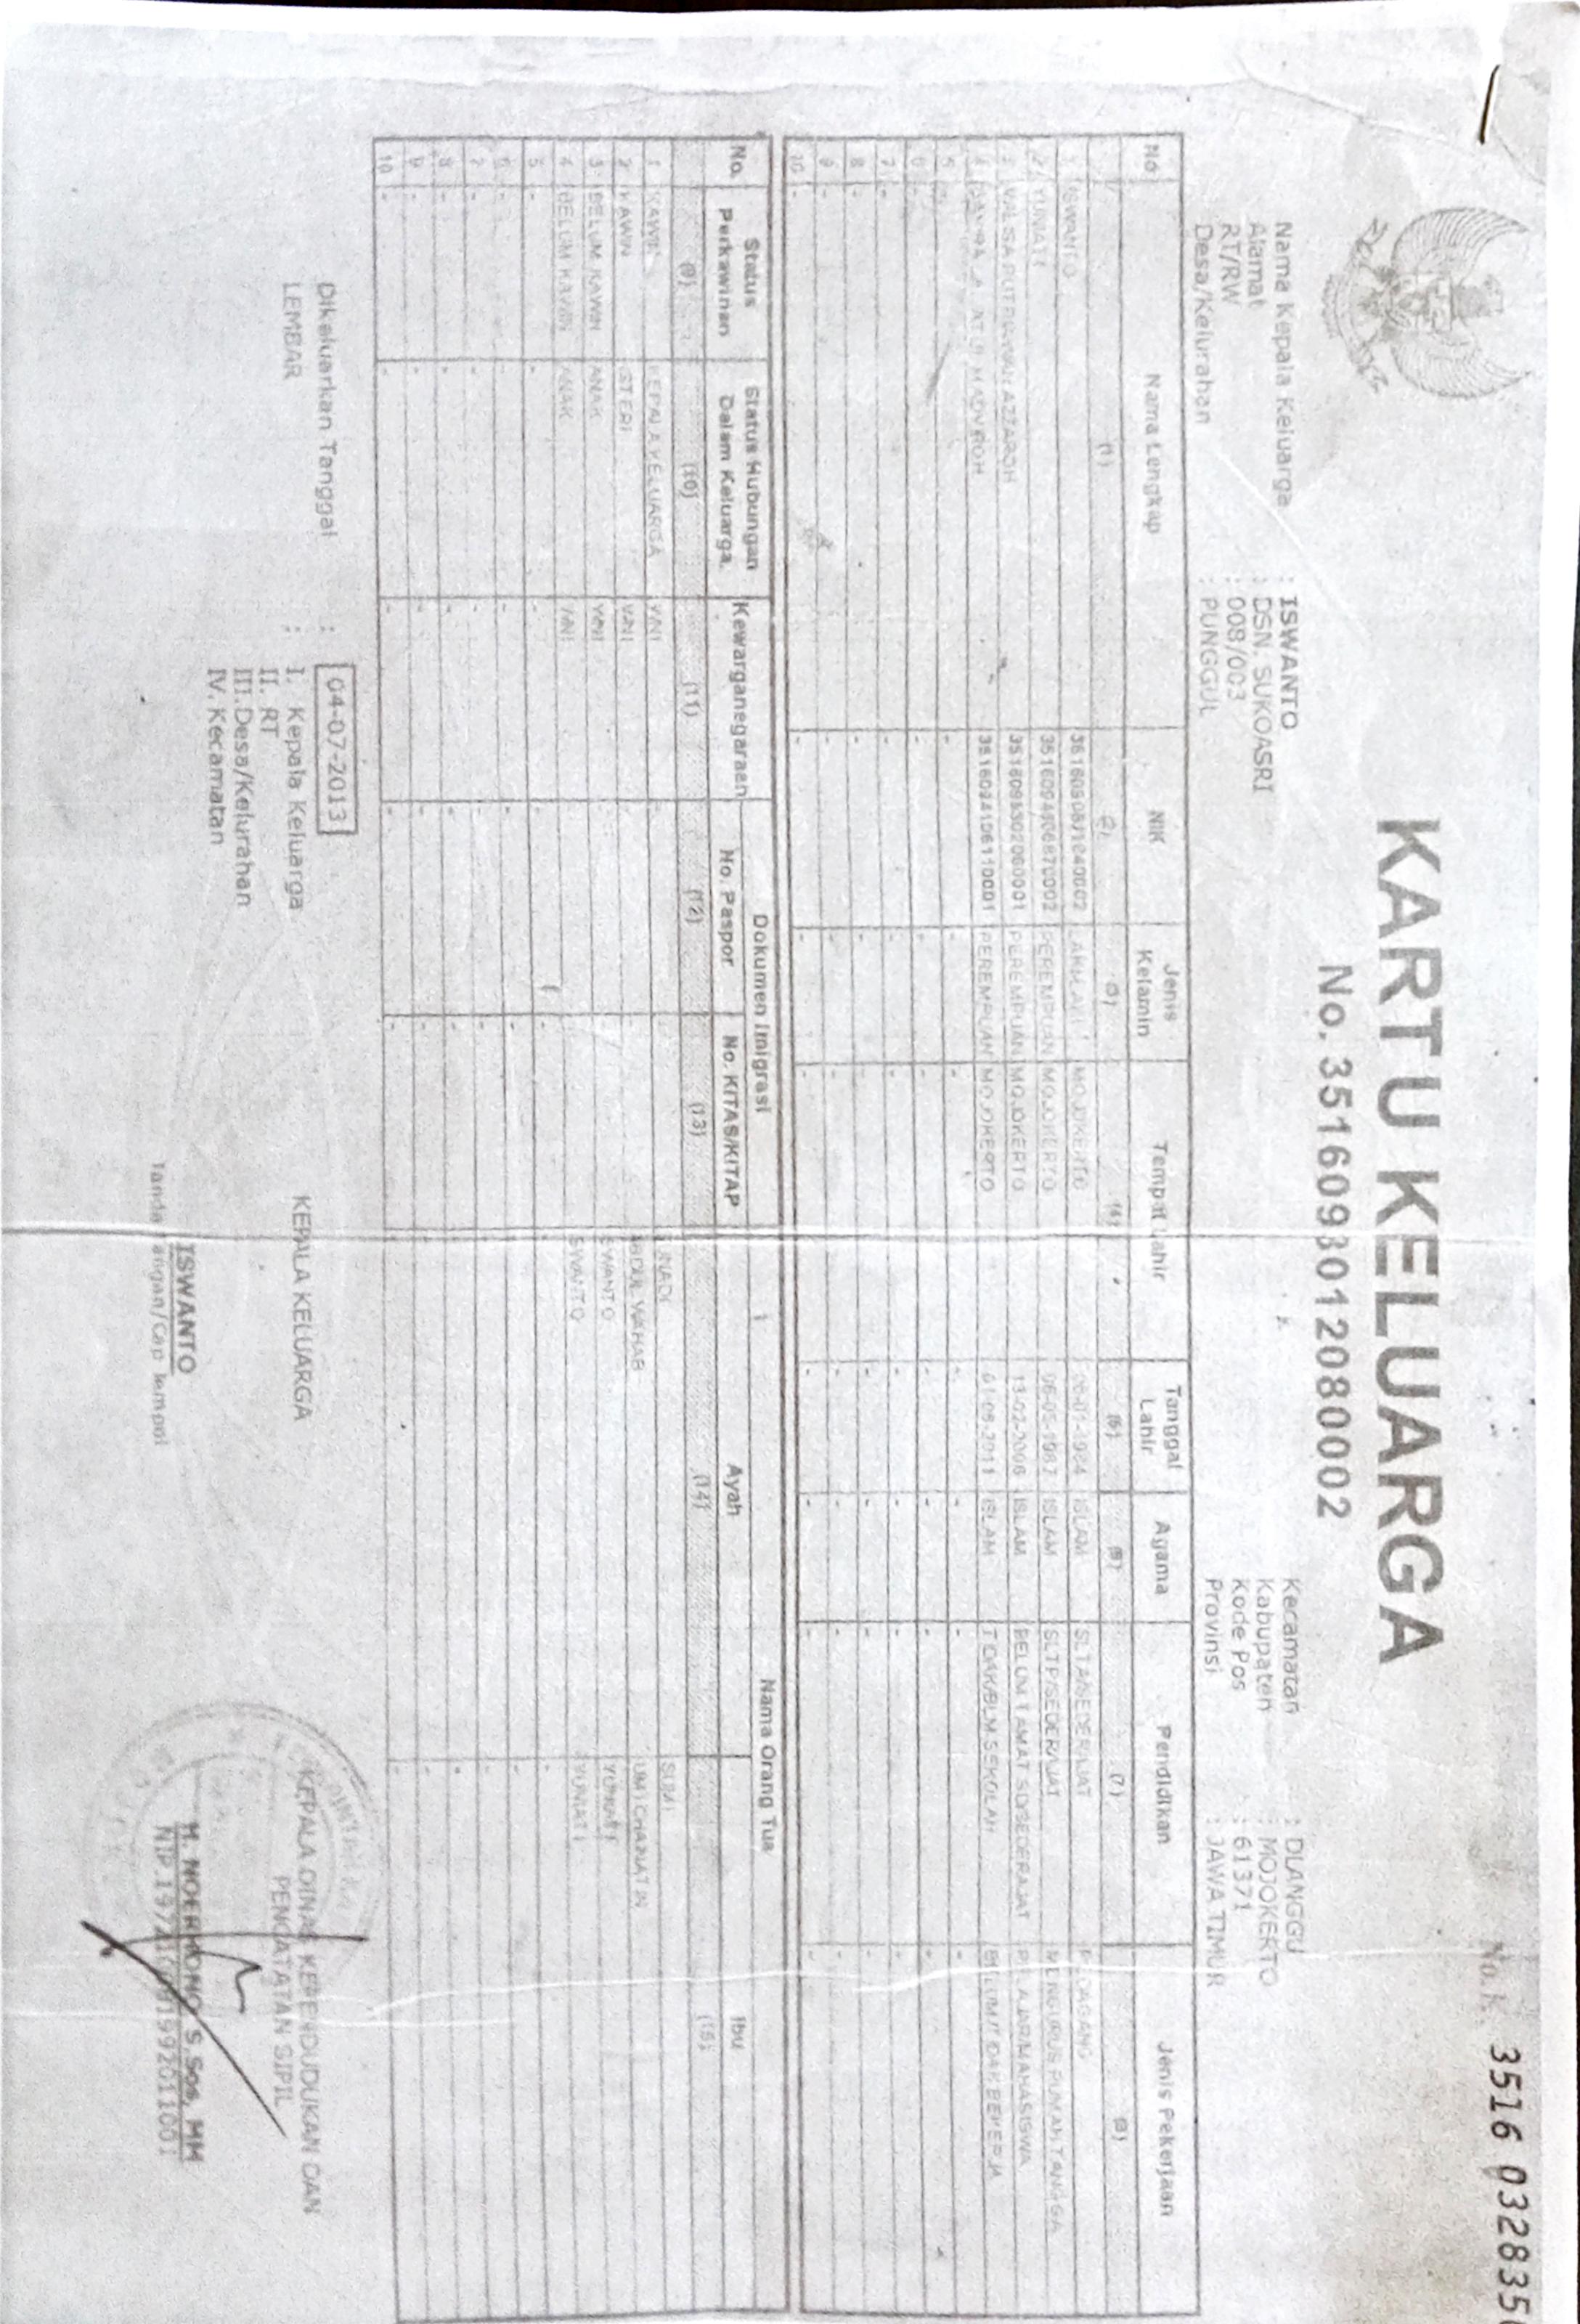 No.K. 3516 032835
KARTU KELUARGA
No. 3516093012080002
Nama Kepala Keluarga : ISWANTO
Alamat : DSN. SUKOASRI
RT/RW : 008/003
Desa/Kelurahan : PUNGGUL
Kecamatan : DLANGGU
Kabupaten : MOJOKERTO
Kode Pos : 61371
Provinsi : JAWA TIMUR
No Nama Lengkap NIK Jenis Kelamin Tempat Lahir Tanggal Lahir Agama Pendidikan Jenis Pekerjaan
(1) (2) (3) (4) (5) (6) (7) (8)
1 ISWANTO LAKI-LAKI MOJOKERTO 06-01-1984 ISLAM SLTA/SEDERAJAT PEDAGANG
2 YUNIATI PEREMPUAN MOJOKERTO 06-05-1987 ISLAM SLTP/SEDERAJAT MENGURUS RUMAH TANGGA
3 PUTRI PEREMPUAN MOJOKERTO 13-02-2006 ISLAM BELUM TAMAT SD/SEDERAJAT PELAJAR/MAHASISWA
4 3516094106110001 PEREMPUAN MOJOKERTO 01-06-2011 ISLAM TIDAK/BLM SEKOLAH BELUM/TIDAK BEKERJA
5 - - - - - - - -
6 - - - - - - - -
7 - - - - - - - -
8 - - - - - - - -
9 - - - - - - - -
10 - - - - - - - -
No. Status Perkawinan Status Hubungan Dalam Keluarga. Kewarganegaraan Dokumen Imigrasi Nama Orang Tua
No. Paspor No. KITAS/KITAP Ayah Ibu
(9) (10) (11) (12) (13) (14) (15)
1 KAWIN KEPALA KELUARGA WNI SUMI
2 KAWIN ISTERI WNI ABDUL WAHAB UMI CHANATIN
3 BELUM KAWIN ANAK WNI ISWANTO YUNIATI
4 BELUM KAWIN ANAK WNI ISWANTO YUNIATI
5 - - - - - - -
6 - - - - - - -
7 - - - - - - -
8 - - - - - - -
9 - - - - - - -
10 - - - - - - -
Dikeluarkan Tanggal : 04-07-2013
LEMBAR : I. Kepala Keluarga
II. RT
III. Desa/Kelurahan
IV. Kecamatan
KEPALA KELUARGA
ISWANTO
Tanda Tangan/Cap Jempol
KEPALA DINAS KEPENDUDUKAN DAN
PENCATATAN SIPIL
H. NOERHONO, S.Sos, MM
NIP.